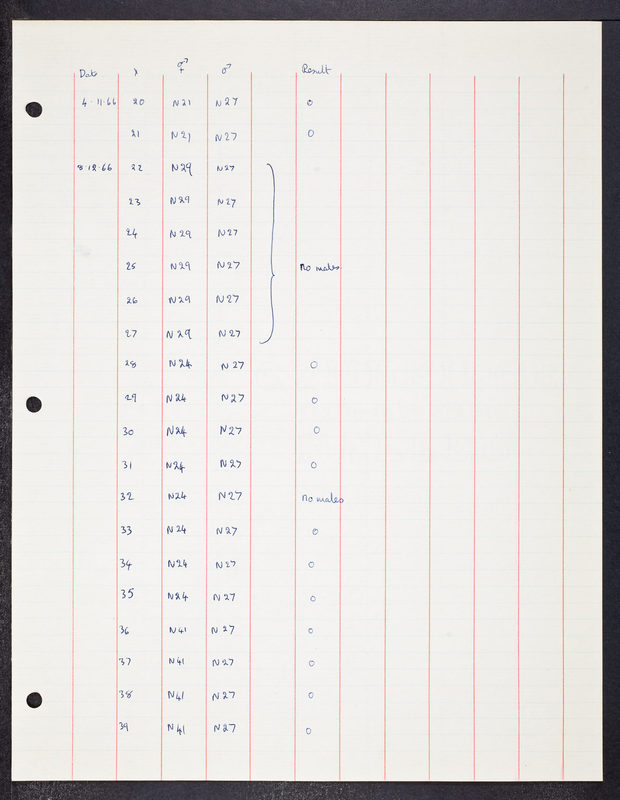 Date X ⚥ ♂ Result
4·11·66 20 N21 N27 0
21 N21 N27 0
8·12·66 22 N29 N27
23 N29 N27
24 N29 N27
25 N29 N27 No males
26 N29 N27
27 N29 N27
28 N24 N27 0
29 N24 N27 0
30 N24 N27 0
31 N24 N27 0
32 N24 N27 No males
33 N24 N27 0
34 N24 N27 0
35 N24 N27 0
36 N41 N27 0
37 N41 N27 0
38 N41 N27 0
39 N41 N27 0